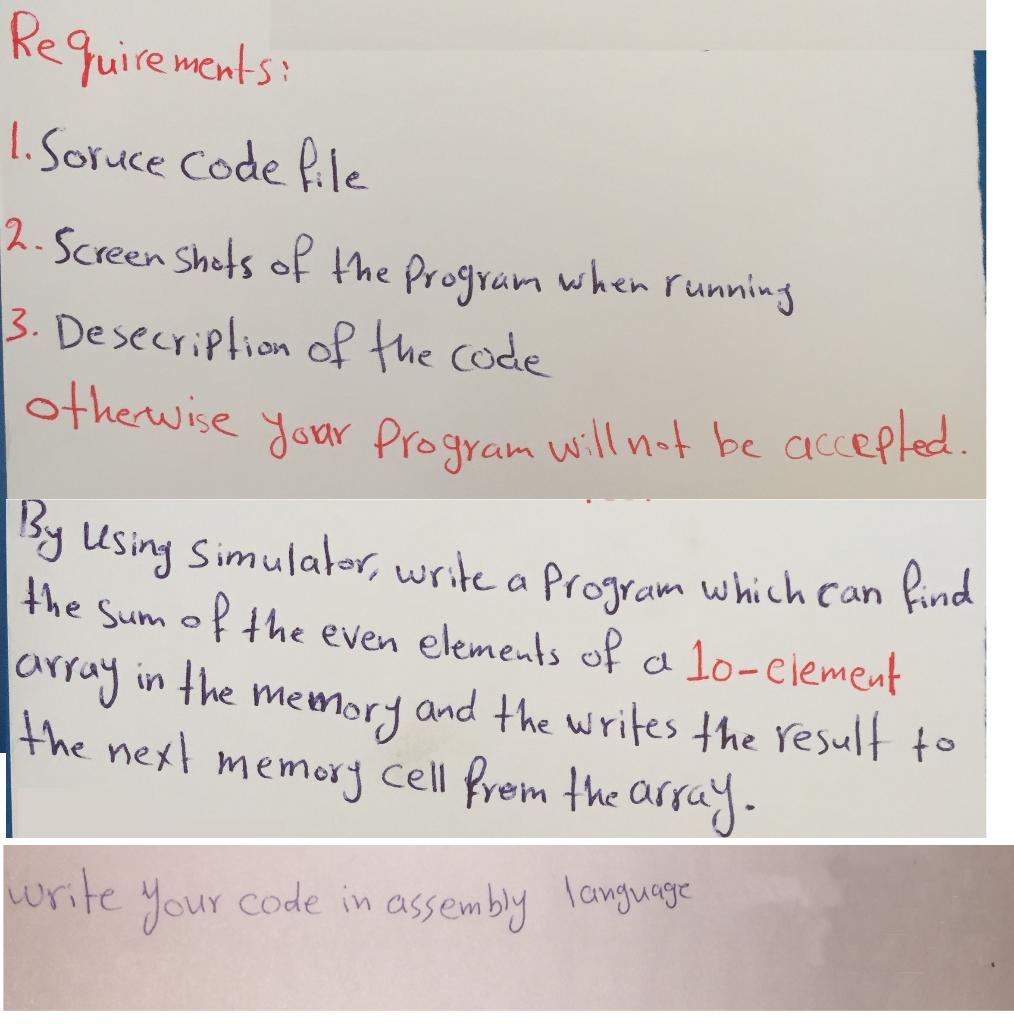 Requirements:
1. Soruce code file
2. Screen shots of the Program when running
3. Desecription of the code
otherwise your Program will not be accepted.
By Using Simulator, write a Program which can find
the sum of the even elements of a 10-element
array in the memory and the writes the result to
the next memory cell from the array.
write your code in assembly language